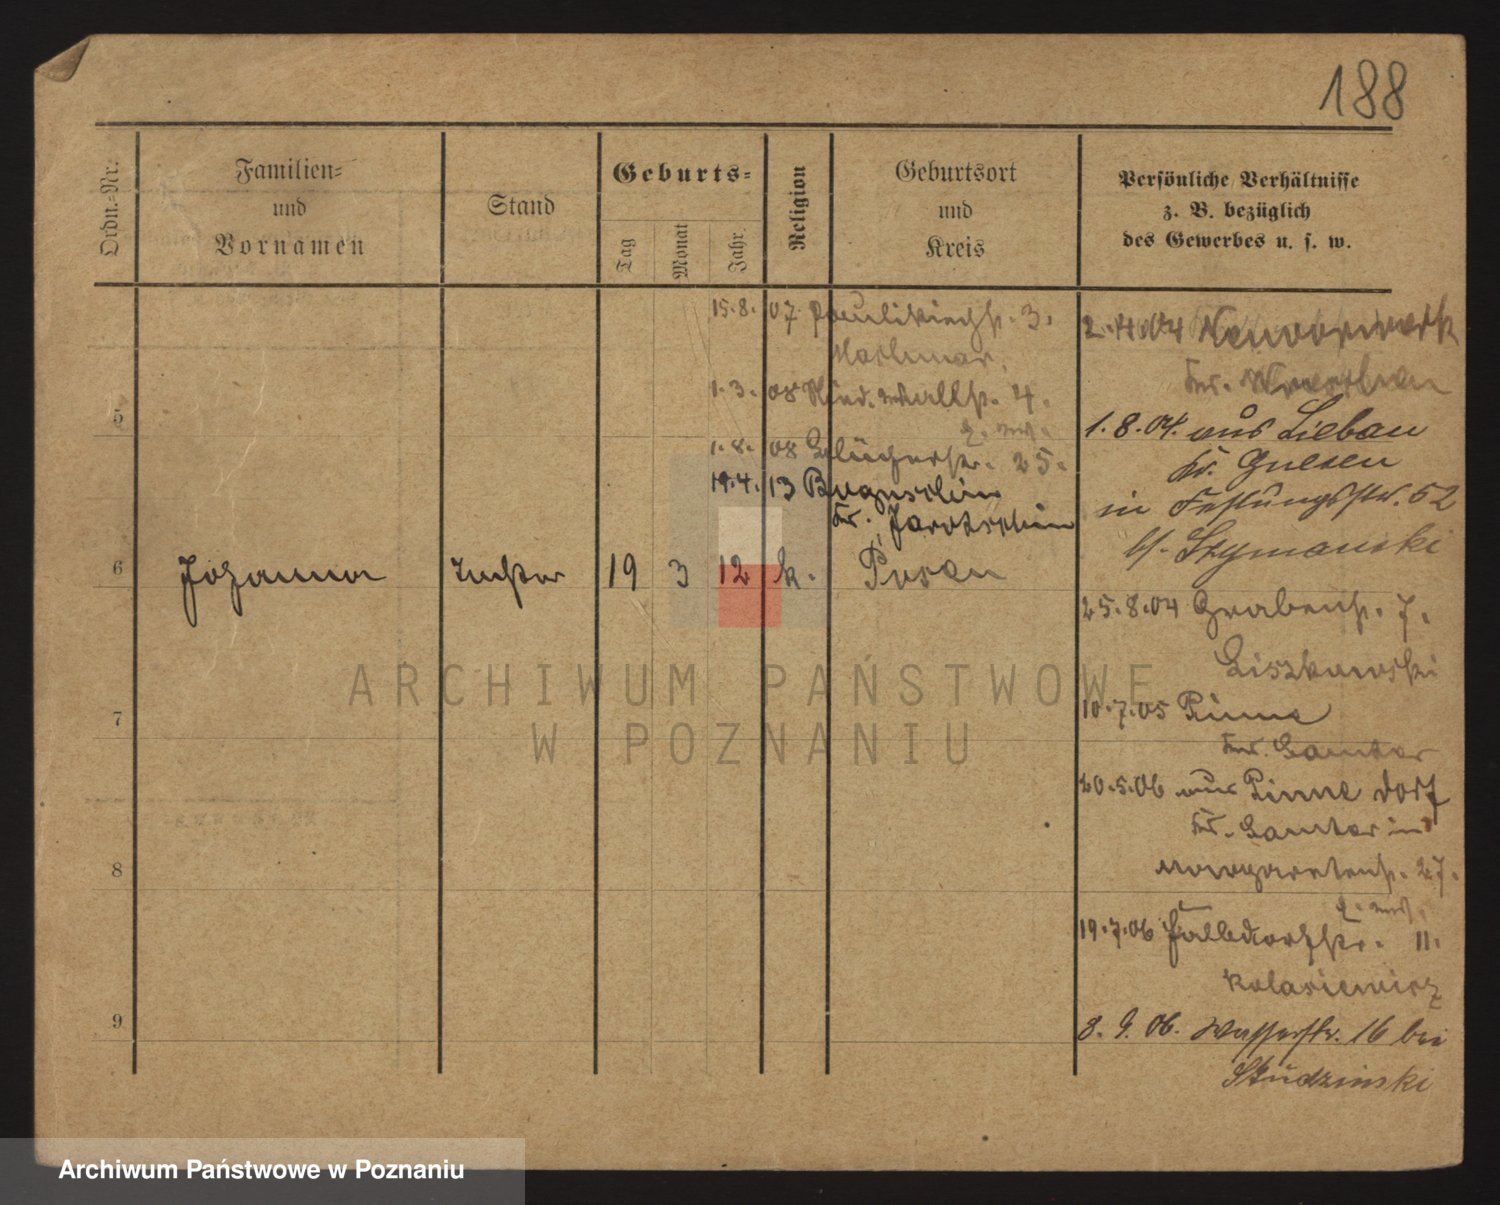 188
Ordn.-Nr.
Familien-
und
Vornamen
Stand
Geburts-
Tag
Monat
Jahr.
Religion
Geburtsort
und
Kreis
Persönliche Verhältnisse
z. B. bezüglich
des Gewerbes u. s. w.
15.8. 07 Paulikirchstr. 3.
1.3. 08 4.
z. mst.
1.8. 08 25.
19.4. 13 Boguschin
Kr. Jarotschin
5
6 Johanna Tochter 19 3 12 k. Posen
7
8
9
2.4.04 Neuvorwerk
Kr. Wreschen
1.8.04. aus Liebau
Kr. Gnesen
in Festungsstr. 52
b/. Szymanski
25.8.04 Grabenstr. 7.
Liszkowski
10.7.05 Pinne
Kr. Samter
20.5.06 aus Pinne Dorf
Kr. Samter in
Margaretenstr. 27.
z. mst.
19.7.06 11.
8.9.06. Wasserstr. 16 bei
Studzinski
ARCHIWUM PAŃSTWOWE
W POZNANIU
Archiwum Państwowe w Poznaniu